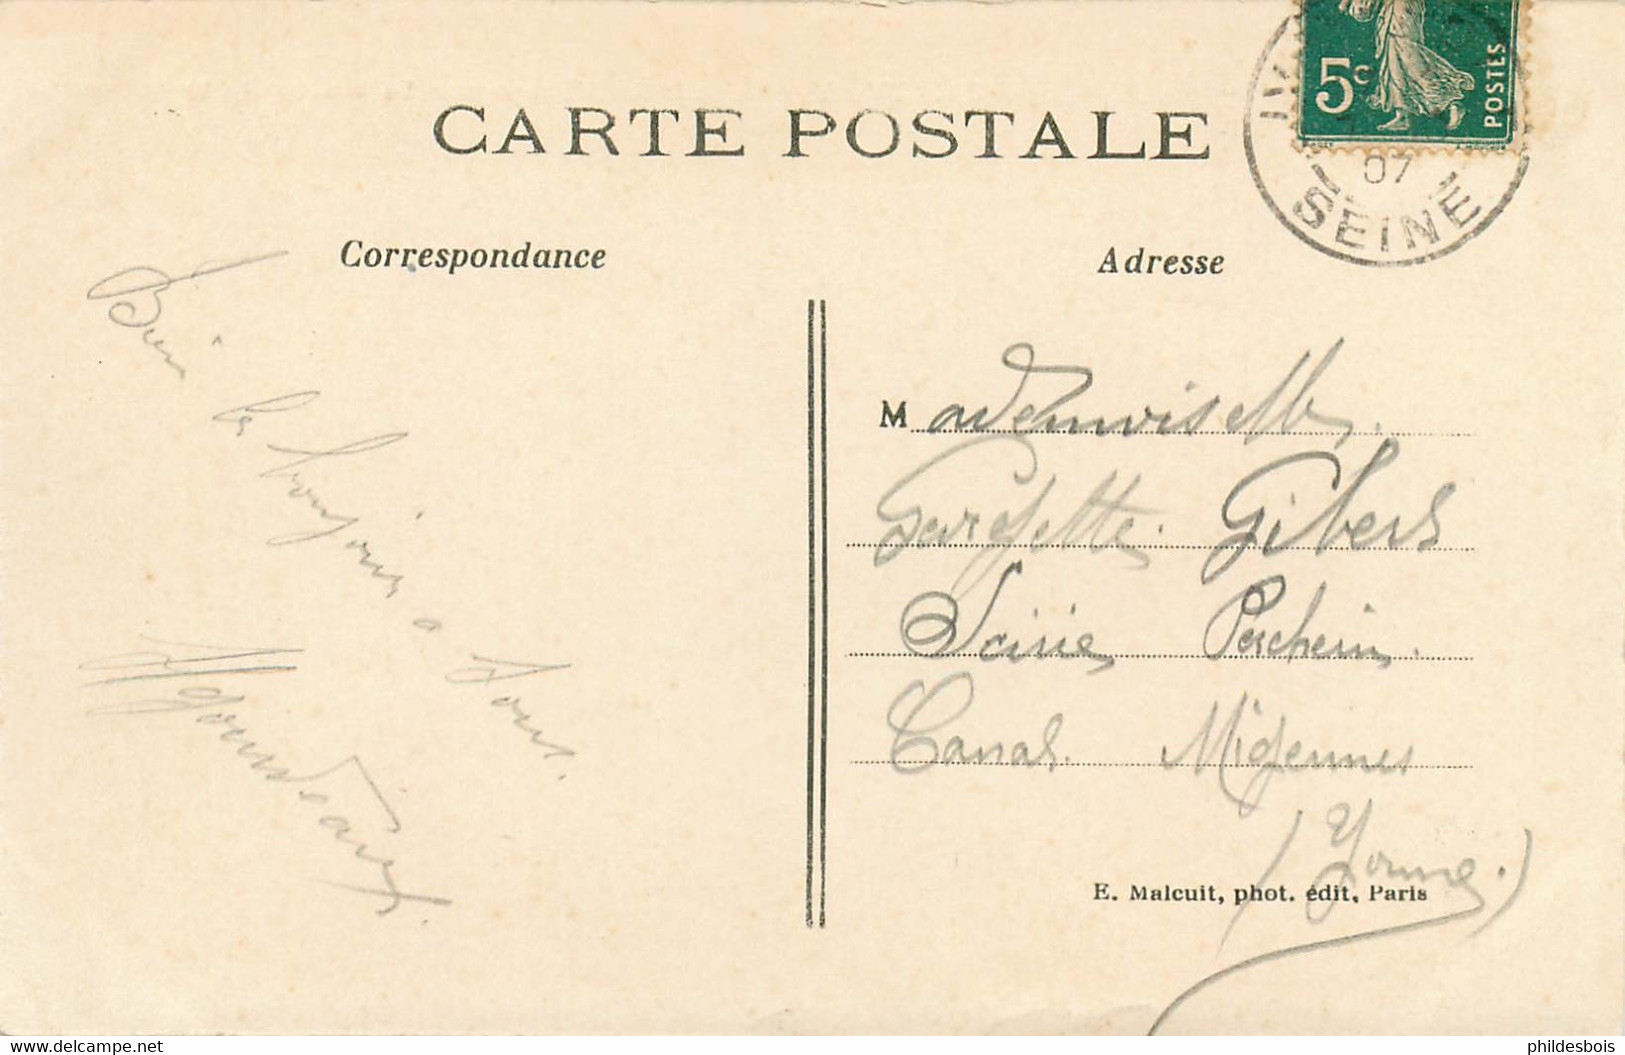 CARTE POSTALE
5c
POSTES
IV
07
SEINE
Correspondance
Adresse
Bien le bonjour a
tous.
Mademoiselle
Georgette Gibert
Scierie Percheron
Canal. Migennes
(Yonne.)
E. Malcuit, phot. édit, Paris
www.delcampe.net
phildesbois